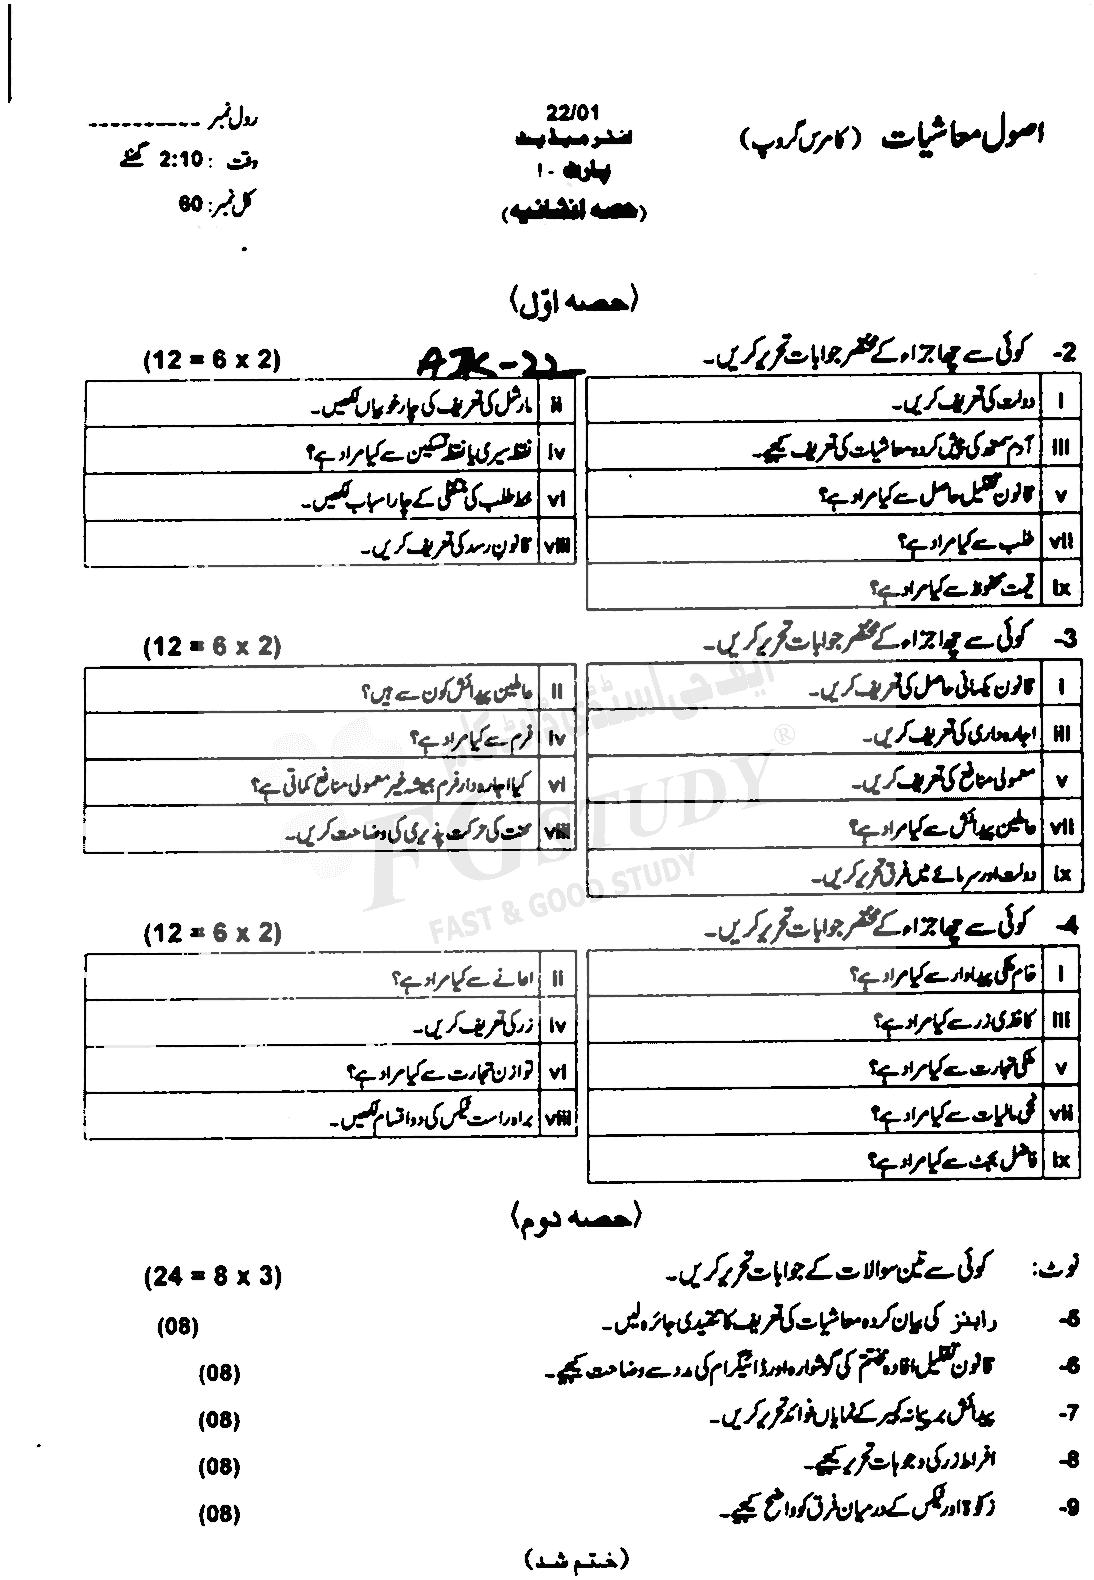 اصول معاشیات (کامرس گروپ)
22/01
انٹرمیڈیٹ
پارٹ - I
(حصہ انشائیہ)
رول نمبر -----------
وقت : 2:10 گھنٹے
کل نمبر: 60
(حصہ اوّل)
2- کوئی سے چھ اجزاء کے مختصر جوابات تحریر کریں۔ (12 = 6 x 2)
AJK-22
i دولت کی تعریف کریں۔
ii مارشل کی تعریف کی چار خوبیاں لکھیں۔
iii آدم سمتھ کی پیش کردہ معاشیات کی تعریف کیجیے۔
iv نقطہ سیری یا نقطہ تسکین سے کیا مراد ہے؟
v قانون تقلیل حاصل سے کیا مراد ہے؟
vi خط طلب کی منتقلی کے چار اسباب لکھیں۔
vii طلب سے کیا مراد ہے؟
viii قانون رسد کی تعریف کریں۔
ix قیمت محفوظ سے کیا مراد ہے؟
3- کوئی سے چھ اجزاء کے مختصر جوابات تحریر کریں۔ (12 = 6 x 2)
i قانون یکسانی حاصل کی تعریف کریں۔
ii عاملین پیدائش کون سے ہیں؟
iii اجارہ داری کی تعریف کریں۔
iv فرم سے کیا مراد ہے؟
v معمولی منافع کی تعریف کریں۔
vi کیا اجارہ دار فرم ہمیشہ غیر معمولی منافع کماتی ہے؟
vii عاملین پیدائش سے کیا مراد ہے؟
viii محنت کی حرکت پذیری کی وضاحت کریں۔
ix دولت اور سرمائے میں فرق تحریر کریں۔
ایف جی اسٹڈی ڈاٹ کام
FGSTUDY®
FAST & GOOD STUDY
4- کوئی سے چھ اجزاء کے مختصر جوابات تحریر کریں۔ (12 = 6 x 2)
i خام ملکی پیداوار سے کیا مراد ہے؟
ii اعانے سے کیا مراد ہے؟
iii کاغذی زر سے کیا مراد ہے؟
iv زر کی تعریف کریں۔
v ملکی تجارت سے کیا مراد ہے؟
vi توازن تجارت سے کیا مراد ہے؟
vii نجی مالیات سے کیا مراد ہے؟
viii براہ راست ٹیکس کی دو اقسام لکھیں۔
ix فاضل بجٹ سے کیا مراد ہے؟
(حصہ دوم)
نوٹ: کوئی سے تین سوالات کے جوابات تحریر کریں۔ (24 = 8 x 3)
5- رابنز کی بیان کردہ معاشیات کی تعریف کا تنقیدی جائزہ لیں۔ (08)
6- قانون تقلیل افادہ مختتم کی گوشوارہ اور ڈائیگرام کی مدد سے وضاحت کیجیے۔ (08)
7- پیدائش بر پیمانہ کبیر کے نمایاں فوائد تحریر کریں۔ (08)
8- افراط زر کی وجوہات تحریر کیجیے۔ (08)
9- زکوٰۃ اور ٹیکس کے درمیان فرق کو واضح کیجیے۔ (08)
(ختم شد)